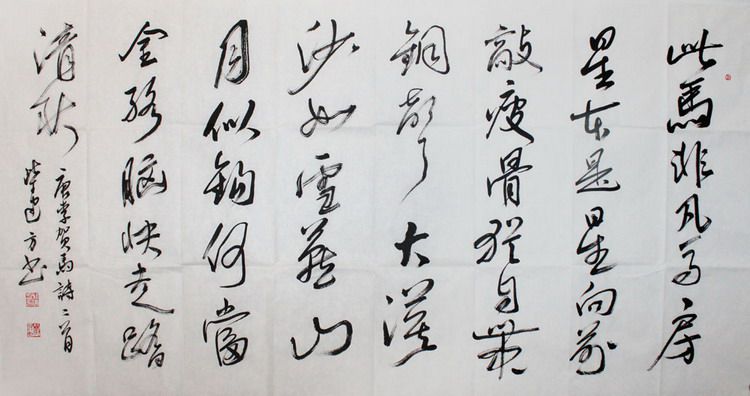 此馬非凡馬房
星本是星向前
敲瘦骨猶自帶
銅聲大漠
沙如雪燕山
月似鉤何當
金絡腦快走踏
清秋
唐李賀馬詩二首
柴建方书